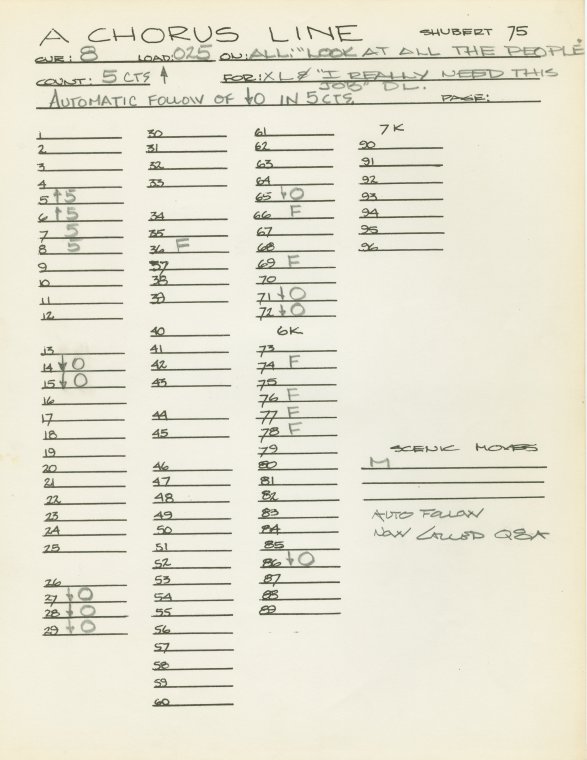 A CHORUS LINE SHUBERT 75
CUE: 8 LOAD: 025 ON: ALL: "LOOK AT ALL THE PEOPLE"
COUNT: 5 CTS ↑ FOR: XL & "I REALLY NEED THIS
JOB" DL.
AUTOMATIC FOLLOW OF ↓0 IN 5 CTS. PAGE:
1
2
3
4
5 ↑5
6 ↑5
7 5
8 5
9
10
11
12
13
14 ↓0
15 ↓0
16
17
18
19
20
21
22
23
24
25
26
27 ↓0
28 ↓0
29 ↓0
30
31
32
33
34
35
36 F
37
38
39
40
41
42
43
44
45
46
47
48
49
50
51
52
53
54
55
56
57
58
59
60
61
62
63
64
65 ↓0
66 F
67
68
69 F
70
71 ↓0
72 ↓0
6K
73
74 F
75
76 F
77 F
78 F
79
80
81
82
83
84
85
86 ↓0
87
88
89
7K
90
91
92
93
94
95
96
SCENIC MOVES
M
AUTO FOLLOW
NOW CALLED Q8A